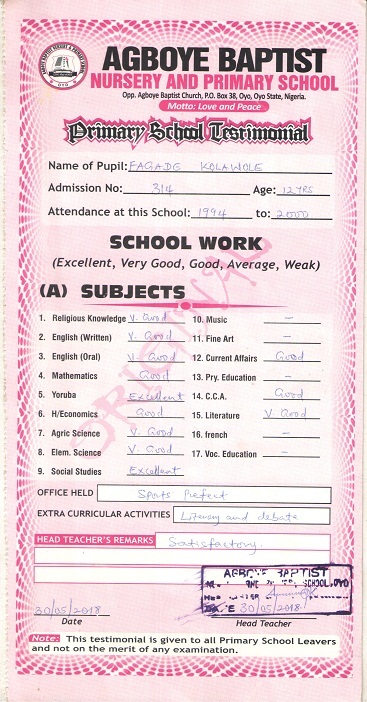 AGBOYE BAPTIST
NURSERY AND PRIMARY SCHOOL
Opp. Agboye Baptist Church, P.O. Box 38, Oyo, Oyo State, Nigeria.
Motto: Love and Peace
Primary School Testimonial
Name of Pupil: FAGADE KOLAWOLE
Admission No: 314 Age: 12 YRS
Attendance at this School: 1994 to: 2000
SCHOOL WORK
(Excellent, Very Good, Good, Average, Weak)
(A) SUBJECTS
1. Religious Knowledge V. Good 10. Music –
2. English (Written) V. Good 11. Fine Art –
3. English (Oral) V. Good 12. Current Affairs Good
4. Mathematics Good 13. Pry. Education –
5. Yoruba Excellent 14. C.C.A. Good
6. H/Economics Good 15. Literature V. Good
7. Agric Science V. Good 16. french –
8. Elem. Science V. Good 17. Voc. Education –
9. Social Studies Excellent
OFFICE HELD Sports Prefect
EXTRA CURRICULAR ACTIVITIES Literary and debate
HEAD TEACHER'S REMARKS Satisfactory.
ORIGINAL
AGBOYE BAPTIST
SCHOOL, OYO
DATE 30/05/2018
30/05/2018
Date Head Teacher
Note: This testimonial is given to all Primary School Leavers
and not on the merit of any examination.